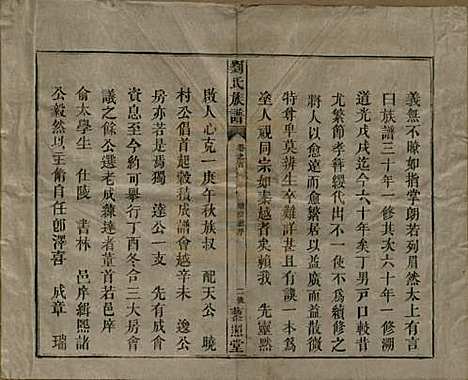 義無不瞭如指掌朗若列眉然太上有言
曰族譜三十年一修其次六十年一修溯
道光戊戌迄今六十年矣丁男戸口較昔
尤繁節孝簪纓代出不一使不続修之
將人以愈遠而愈繁居以益廣而益散微
特尊卑莫辨生卒難詳甚且有誤一本為
塗人視同宗如秦越者矣賴我 先靈默
劉氏族譜
二 敦
藜照堂
啟人心克一庚午秋族叔 配天公 曉
村公倡首起穀積成譜會越辛未 逵公
房亦若蔦獨 達公一支 先行舉行後
資息至今約可舉行丁酉冬合三大房會
議之餘公選老成練達者董其首若邑庠
俞太學生 仕陵 書林 邑庠緝熙諸
公毅然以主脩自任郎澤喜 成章 瑞